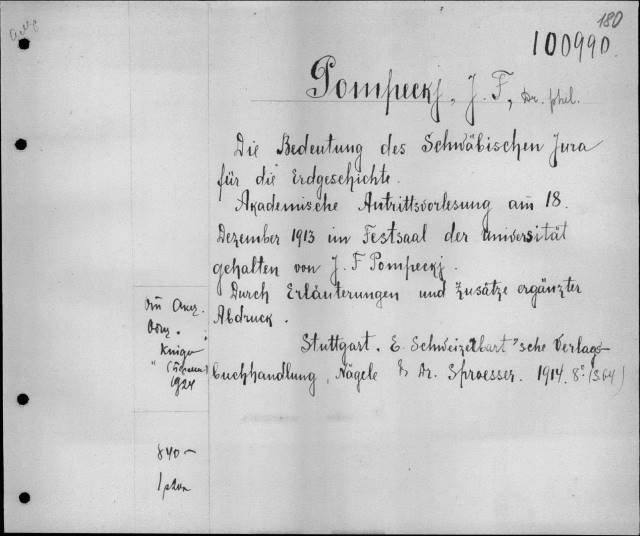 180
100990.
Pompeckj, J. F., Dr. phil.
Die Bedeutung des Schwäbischen Jura
für die Erdgeschichte.
Akademische Antrittsvorlesung am 18.
Dezember 1913 im Festsaal der Universität
gehalten von J. F Pompeckj.
Durch Erläuterungen und Zusätze ergänzter
Abdruck.
Stuttgart. E. Schweizerbart'sche Verlags-
buchhandlung, Nägele & Dr. Sproesser. 1914. 8° (S 64)
1924
840-